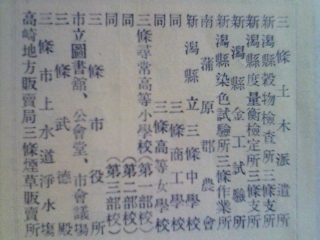 三條土木派遣所
新潟縣穀物檢査所三條支所
新潟縣度量衡檢定所三條支所
新潟縣金工試驗所
新潟縣染色試驗所三條作業所
南蒲原郡農會
新潟縣立三條中學校
同 三條商工學校
同 三條高等女學校
三條尋常高等小學校(第一部校)
同 (第二部校)
同 (第三部校)
三條市役所
市立圖書館、公會堂、市會議場
三條武德殿
三條市上水道淨水場
高崎地方販賣局三條煙草販賣所